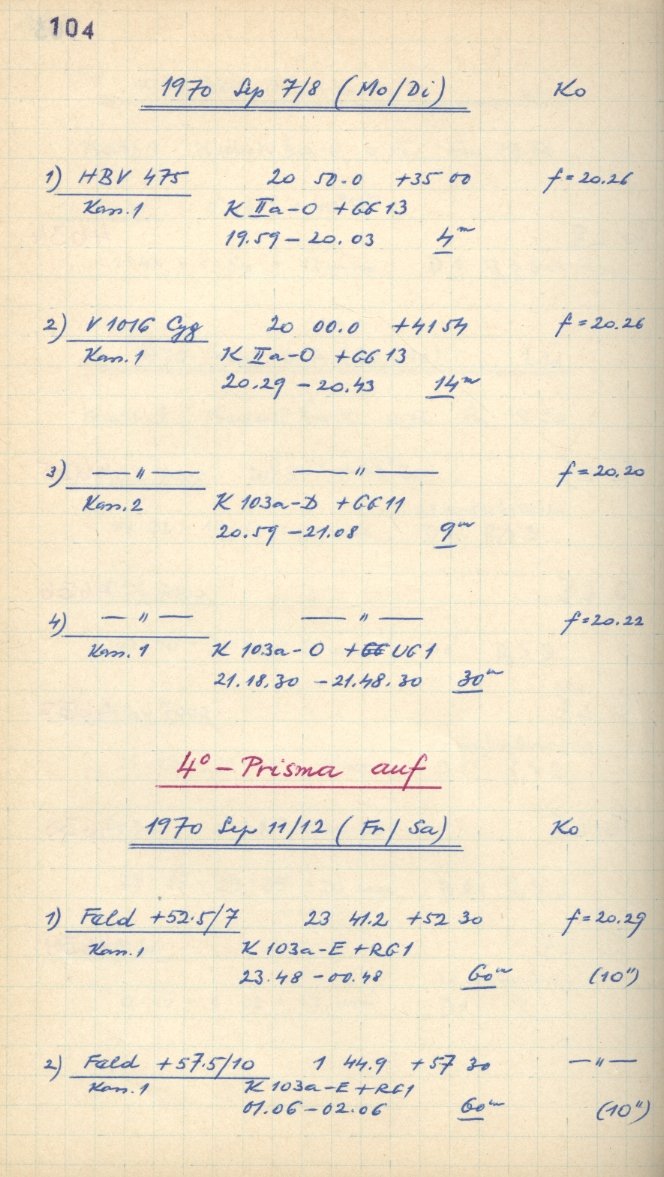 104
1970 Sep 7/8 (Mo/Di) Ko
1) HBV 475 20 50.0 +35 00 f=20.26
Kass.1 K IIa-O +GG13
19.59–20.03 4ᵐ
2) V1016 Cyg 20 00.0 +41 54 f=20.26
Kass.1 K IIa-O +GG13
20.29–20.43 14ᵐ
3) —„— —„— f=20.20
Kass.2 K 103a-D +GG11
20.59–21.08 9ᵐ
4) —„— —„— f=20.22
Kass.1 K 103a-O + UG1
21.18.30 – 21.48.30 30ᵐ
4°-Prisma auf
1970 Sep 11/12 (Fr/Sa) Ko
1) Feld +52.5/7 23 41.2 +52 30 f=20.29
Kass.1 K 103a-E +RG1
23.48–00.48 60ᵐ (10")
2) Feld +57.5/10 1 44.9 +57 30 —„—
Kass.1 K 103a-E +RG1
01.06–02.06 60ᵐ (10")